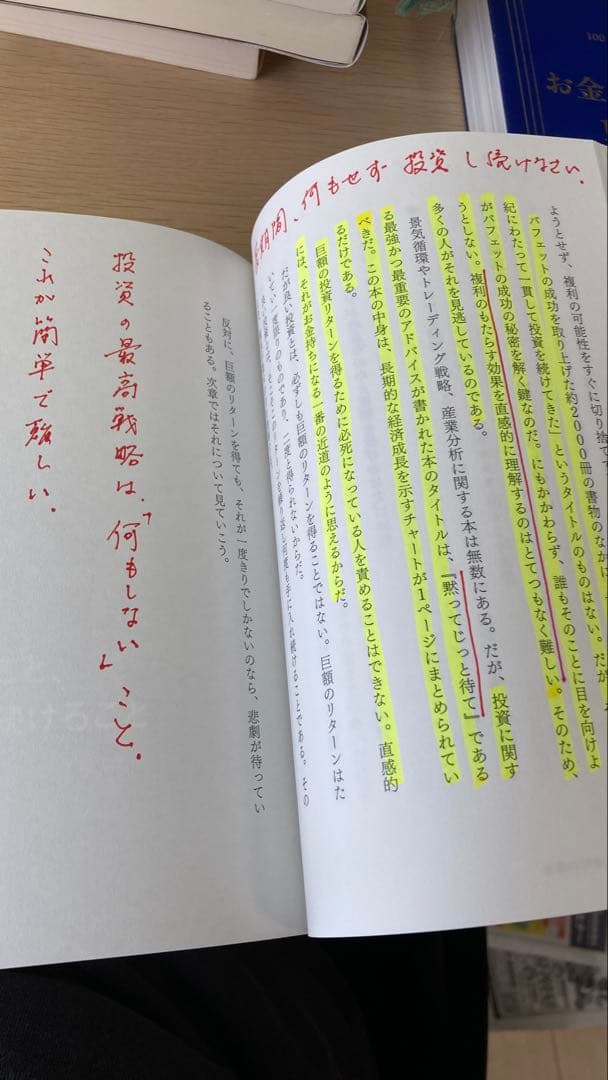 期間、何もせず 投資し続けなさい.
ようとせず、複利の可能性をすぐに切り捨て
バフェットの成功を取り上げた約2000冊の書物のなかに
紀にわたって一貫して投資を続けてきた」というタイトルのものはない。だが、
がバフェットの成功の秘密を解く鍵なのだ。にもかかわらず、誰もそのことに目を向けよ
うとしない。複利のもたらす効果を直感的に理解するのはとてつもなく難しい。そのため、
多くの人がそれを見逃しているのである。
景気循環やトレーディング戦略、産業分析に関する本は無数にある。だが、投資に関す
る最強かつ最重要のアドバイスが書かれた本のタイトルは、『黙ってじっと待て』である
べきだ。この本の中身は、長期的な経済成長を示すチャートが1ページにまとめられてい
るだけである。
巨額の投資リターンを得るために必死になっている人を責めることはできない。直感的
には、それがお金持ちになる一番の近道のように思えるからだ。
だが良い投資とは、必ずしも巨額のリターンを得ることではない。巨額のリターンはた
いてい一度限りのものであり、二度と得られないからだ。
良い投資とは、そこそこのリターンを繰り返し何度も手に入れ続けることである。その
反対に、巨額のリターンを得ても、それが一度きりでしかないのなら、悲劇が待ってい
ることもある。次章ではそれについて見ていこう。
投資の最高戦略は、「何もしない」こと.
これが簡単で難しい.
100
お金